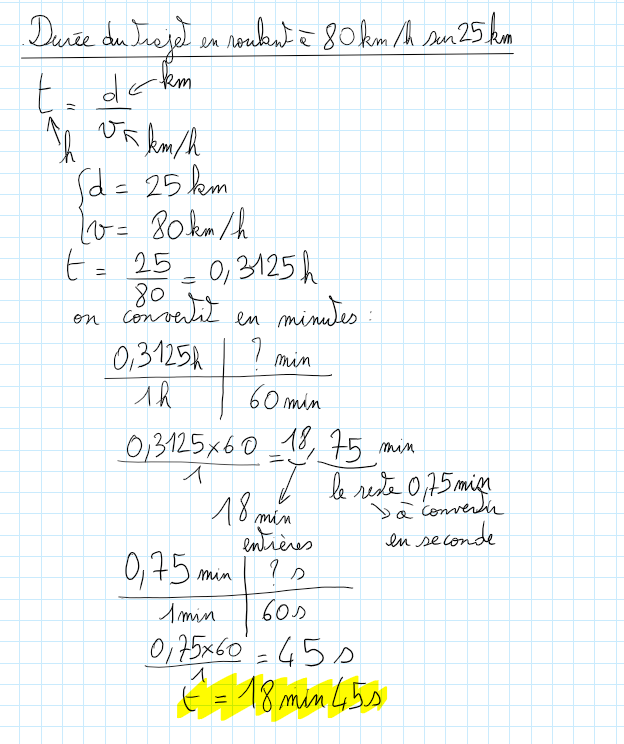 Durée du trajet en roulant à 80 km/h sur 25 km
t = d/v
km
h
km/h
d = 25 km
v = 80 km/h
t = 25/80 = 0,3125 h
on convertit en minutes :
0,3125h | ? min
1h | 60 min
0,3125×60/1 = 18,75 min
le reste 0,75 min
18 min
à convertir
entières
en seconde
0,75 min | ? s
1 min | 60 s
0,75×60/1 = 45 s
t = 18 min 45 s